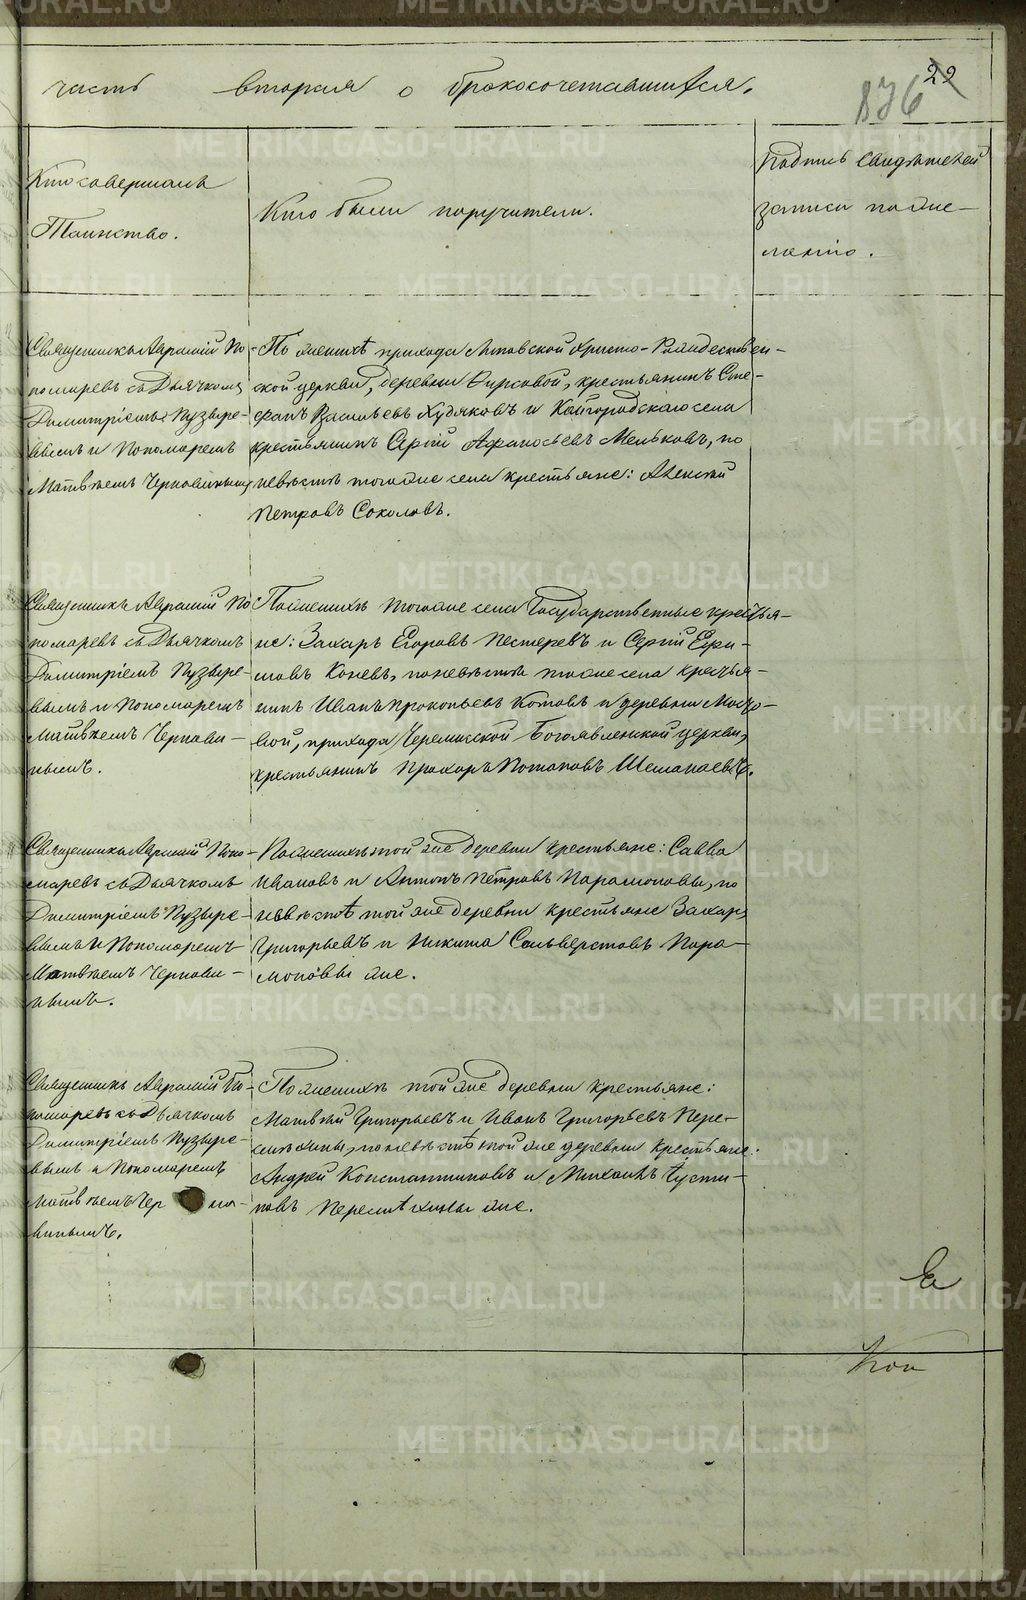 METRIKI.GASO-URAL.RU
22
876
часть вторая о бракосочетавшихся.
Кто совершалъ
Таинство.
Кто были поручители.
Подпись свидѣтелей
записи по же-
ланію.
Священникъ Аврамій По-
номаревъ съ Дьячкомъ
Димитріемъ Пузыре-
вымъ и Пономаремъ
Матвѣемъ Чернавинымъ
По женихѣ прихода Христо-Рождествен-
ской церкви, деревни крестьянинъ Сте-
фанъ Васильевъ Худяковъ и Кайгородскаго села
крестьянинъ Сергій Афанасьевъ Мельковъ, по
невѣстѣ того же села крестьяне: Алексѣй
Петровъ Соколовъ.
Священникъ Аврамій По
номаревъ съ Дьячкомъ
Димитріемъ Пузыре-
вымъ и Пономаремъ
Матвѣемъ Чернави-
нымъ.
По женихѣ того же села Государственные крестья-
не: Захаръ Егоровъ Пестеревъ и Сергій Ефи-
мовъ Коневъ, по невѣстѣ того же села крестья-
нинъ Иванъ Прокопьевъ Котовъ и деревни
прихода Черемисской Богоявленской церкви,
крестьянинъ Прохоръ Потаповъ
Священникъ Аврамій Поно-
маревъ съ Дьячкомъ
Димитріемъ Пузыре-
вымъ и Пономаремъ
Матвѣемъ Чернави-
нымъ.
По женихѣ той же деревни крестьяне: Савва
Ивановъ и Антонъ Петровъ Парамоновы, по
невѣстѣ той же деревни крестьяне Захаръ
Григорьевъ и Никита Сильверстовъ Пара-
моновы же.
Священникъ Аврамій По-
номаревъ съ Дьячкомъ
Димитріемъ Пузыре-
вымъ и Пономаремъ
Матвѣемъ Черна-
винымъ.
По женихѣ той же деревни крестьяне:
Матвѣй Григорьевъ и Иванъ Григорьевъ Пере-
смѣхины, по невѣстѣ той же деревни крестьяне:
Андрей Константиновъ и Михаилъ Густи-
новъ Пересмѣхины же.
Кон